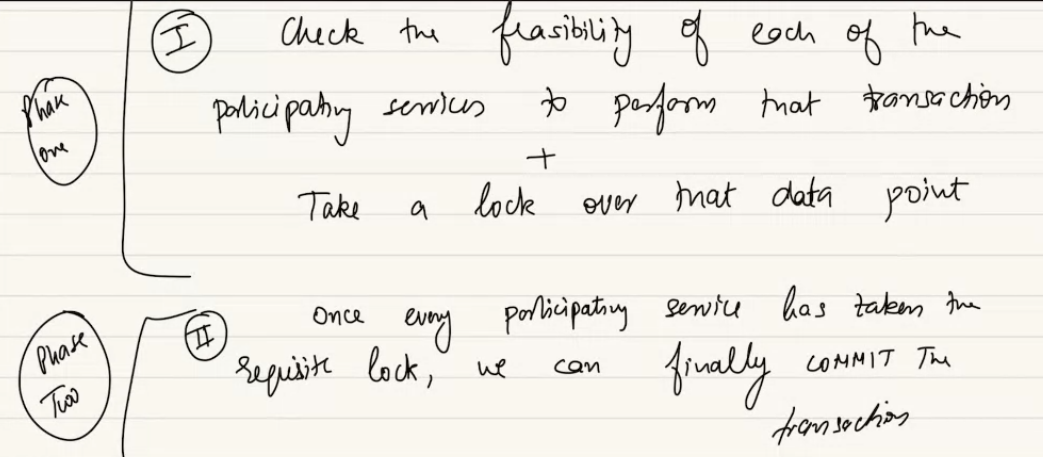 I Check the feasibility of each of the
Phase one
participating services to perform that transaction
+
Take a lock over that data point
Phase Two
II Once every participating service has taken the
requisite lock, we can finally COMMIT The
transaction